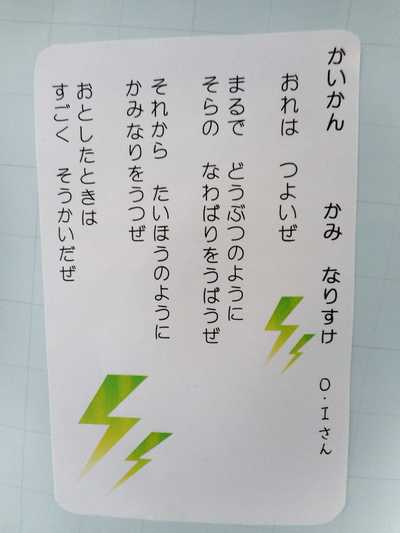 かいかん　　かみ　なりすけ　O・Iさん
おれは　つよいぜ
まるで　どうぶつのように
そらの　なわばりをうばうぜ
それから　たいほうのように
かみなりをうつぜ
おとしたときは
すごく　そうかいだぜ